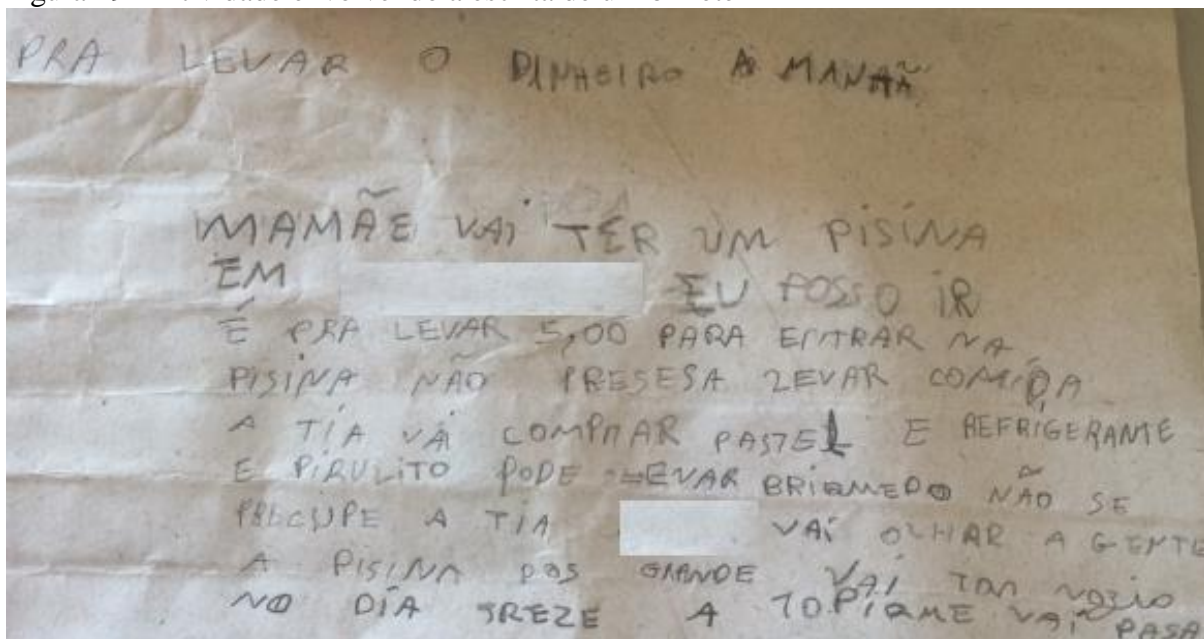 PRA LEVAR O DINHEIRO A MANHÃ
MAMÃE VAI TER UM PISINA
EM EU POSSO IR
É PRA LEVAR 5,00 PARA ENTRAR NA
PISINA NÃO PRESESA LEVAR COMIDA
A TÍA VÁ COMPRAR PASTEL E REFRIGERANTE
E PIRULITO PODE LEVAR NÃO SE
A TIA VAÍ OLHAR A GENTE
A PISINA DOS GRANDE VAÍ TAR
NO DÍA TREZE A VAÍ PASA